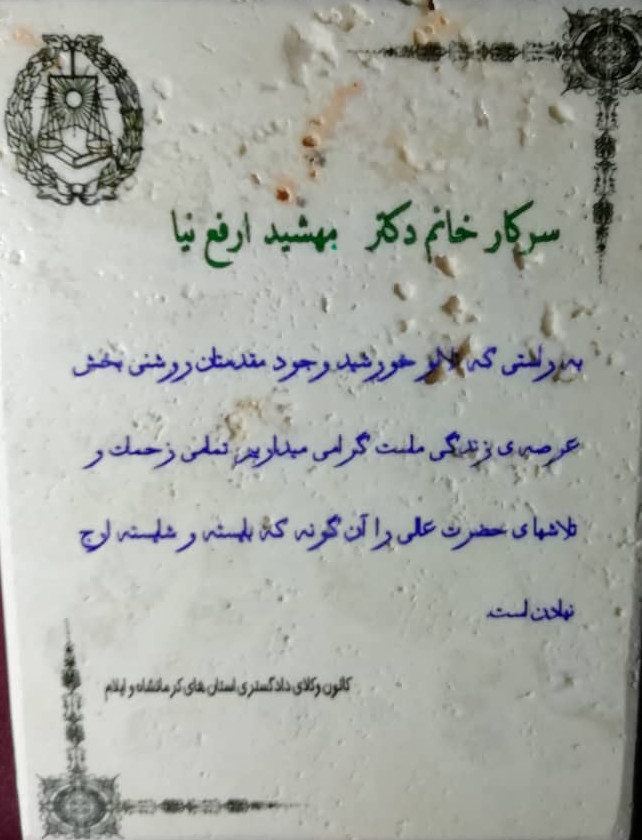 سرکار خانم دکتر مهشید ارفع نیا
به راستی که تلالو خورشید وجود مقدمتان روشنی بخش
عرصه ی زندگی ماست گرامی میداریم تمامی زحمات و
تلاشهای حضرت عالی را آن گونه که بایسته و شایسته ارج
نهادن است.
کانون وکلای دادگستری استان های کرمانشاه و ایلام